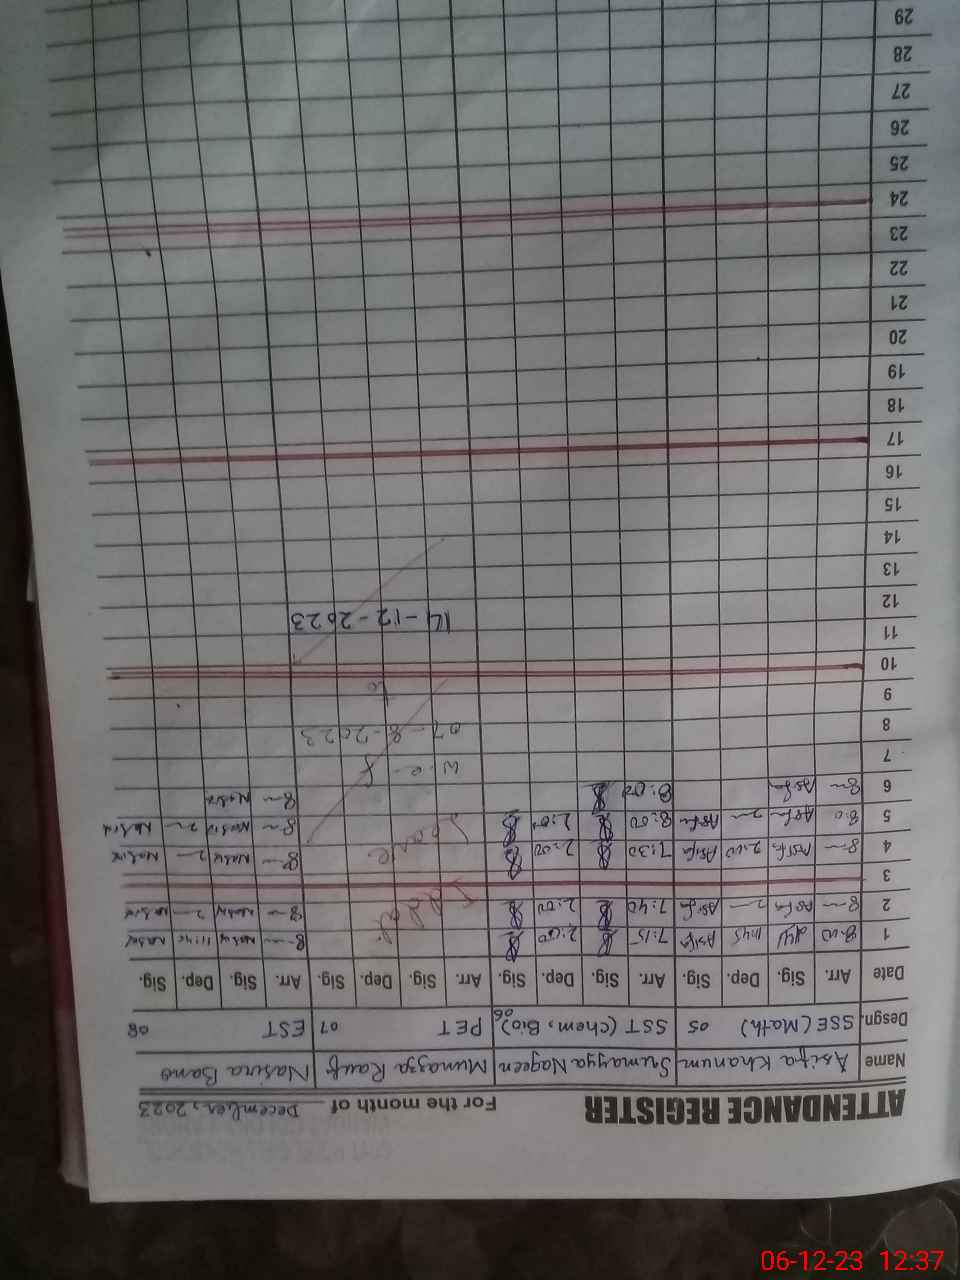 ATTENDANCE REGISTER For the month of December, 2023
Name Asifa Khanum Sumayya Nageen Munazza Rauf Nasira Bano
Desgn. SSE (Math) 05 SST (Chem, Bio) 06 PET 07 EST 08
Date Arr. Sig. Dep. Sig. Arr. Sig. Dep. Sig. Arr. Sig. Dep. Sig. Arr. Sig. Dep. Sig.
1 8:00 11:45 Asifa 7:15 2:00 8— Nasir 11:45 Nasir
2 8— Asfa 2— Asfa 7:40 2:00 8— Nasir 2— Nasir
3
4 8— Asfa 2:00 Asifa 7:30 2:00 8— Nasir 2— Nasir
5 8:0 Asfa 2— Asfa 8:00 2:00 Leave 8— Nasir 2— Nasir
6 8— Asfa 8:00 8— Nasir
7 w.e.f
8 07-8-2023
9 to
10
11 14-12-2023
12
13
14
15
16
17
18
19
20
21
22
23
24
25
26
27
28
29
06-12-23 12:37